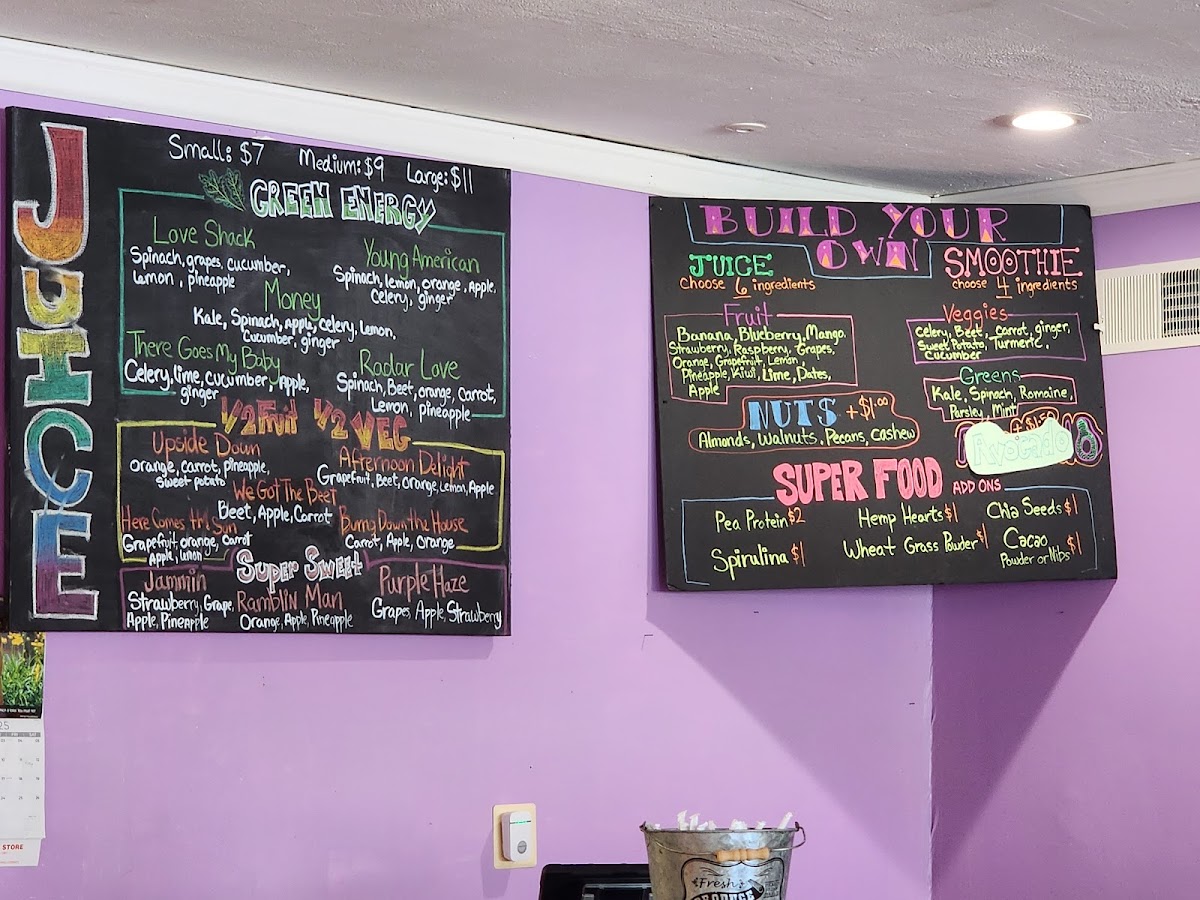 JUICE
Small: $7 Medium: $9 Large: $11
GREEN ENERGY
Love Shack
Spinach, grapes, cucumber,
Lemon, pineapple
Young American
Spinach, lemon, orange, Apple,
Celery, ginger
Money
Kale, Spinach, Apple, Celery, Lemon,
Cucumber, ginger
There Goes My Baby
Celery, lime, cucumber, Apple,
ginger
Radar Love
Spinach, Beet, orange, Carrot,
Lemon, pineapple
1/2 Fruit 1/2 VEG
Upside Down
orange, carrot, pineapple,
sweet potato
Afternoon Delight
Grapefruit, Beet, Orange, Lemon, Apple
We Got The Beet
Beet, Apple, Carrot
Here Comes the Sun
Grapefruit, orange, Carrot
Apple, Lemon
Burning Down the House
Carrot, Apple, Orange
Super Sweet
Jammin
Strawberry, Grape,
Apple, Pineapple
Ramblin Man
Orange, Apple, Pineapple
Purple Haze
Grapes, Apple, Strawberry
BUILD YOUR
OWN
JUICE
choose 6 ingredients
SMOOTHIE
choose 4 ingredients
Fruit
Banana, Blueberry, Mango,
Strawberry, Raspberry, Grapes,
Orange, Grapefruit, Lemon,
Pineapple, Kiwi, Lime, Dates,
Apple
Veggies
Celery, Beet, Carrot, ginger,
Sweet Potato, Turmeric,
Cucumber
Greens
Kale, Spinach, Romaine,
Parsley, Mint
NUTS +$1.00
Almonds, Walnuts, Pecans, Cashew
+$1.50
Avocado
SUPER FOOD ADD ONS
Pea Protein $2
Hemp Hearts $1
Chia Seeds $1
Spirulina $1
Wheat Grass Powder $1
Cacao $1
Powder or Nibs
STORE
Fresh
PRODUCE